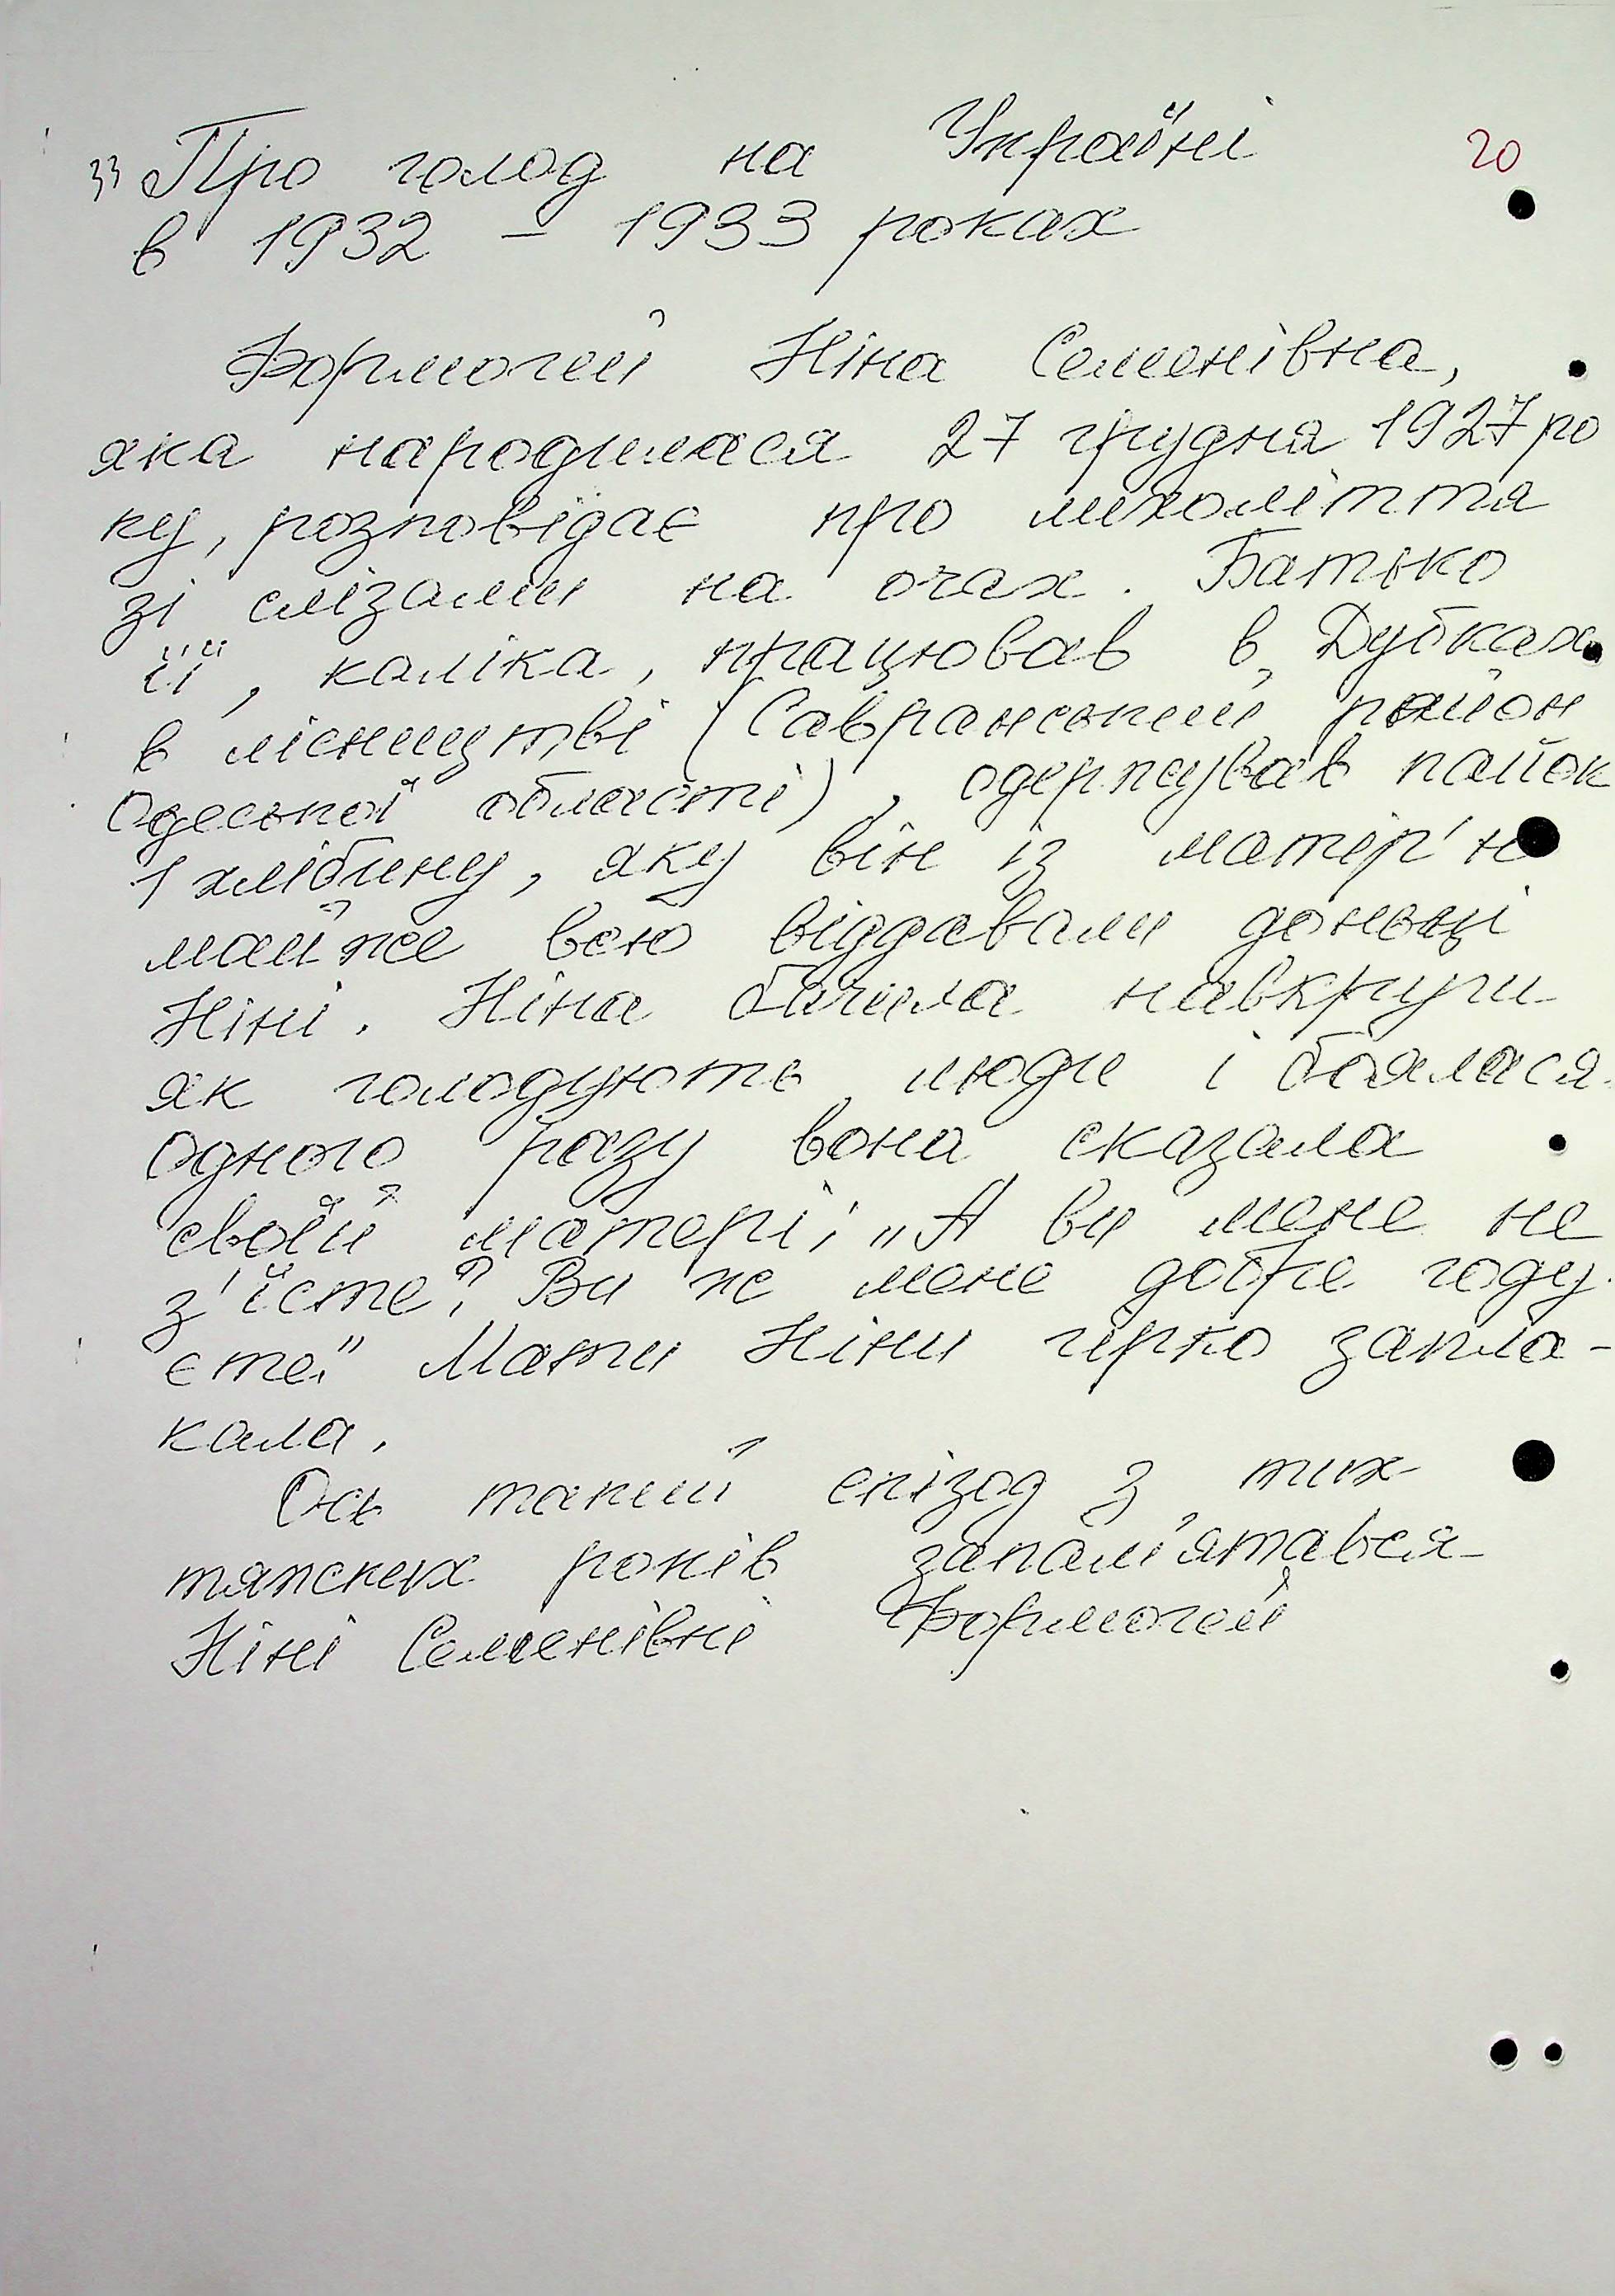 „Про голод на Україні
20
в 1932 – 1933 роках
Формогей Ніна Семенівна,
яка народилася 27 грудня 1927 ро
ку, розповідає про лихоліття
зі слізами на очах. Батько
її, каліка, працював в Дубках
в лісництві (Савранський район
Одеської області), одержував пайок
1 хлібину, яку він із матір'ю
майже всю віддавали доньці
Ніні. Ніна бачила навкруги
як голодують люди і боялася.
Одного разу вона сказала
своїй матері; „А ви мене не
з'їсте? Ви же мене добре году
єте." Мати Ніни гірко запла-
кала.
Ось такий епізод з тих
тяжских років запам'ятався
Ніні Семенівні Формогей